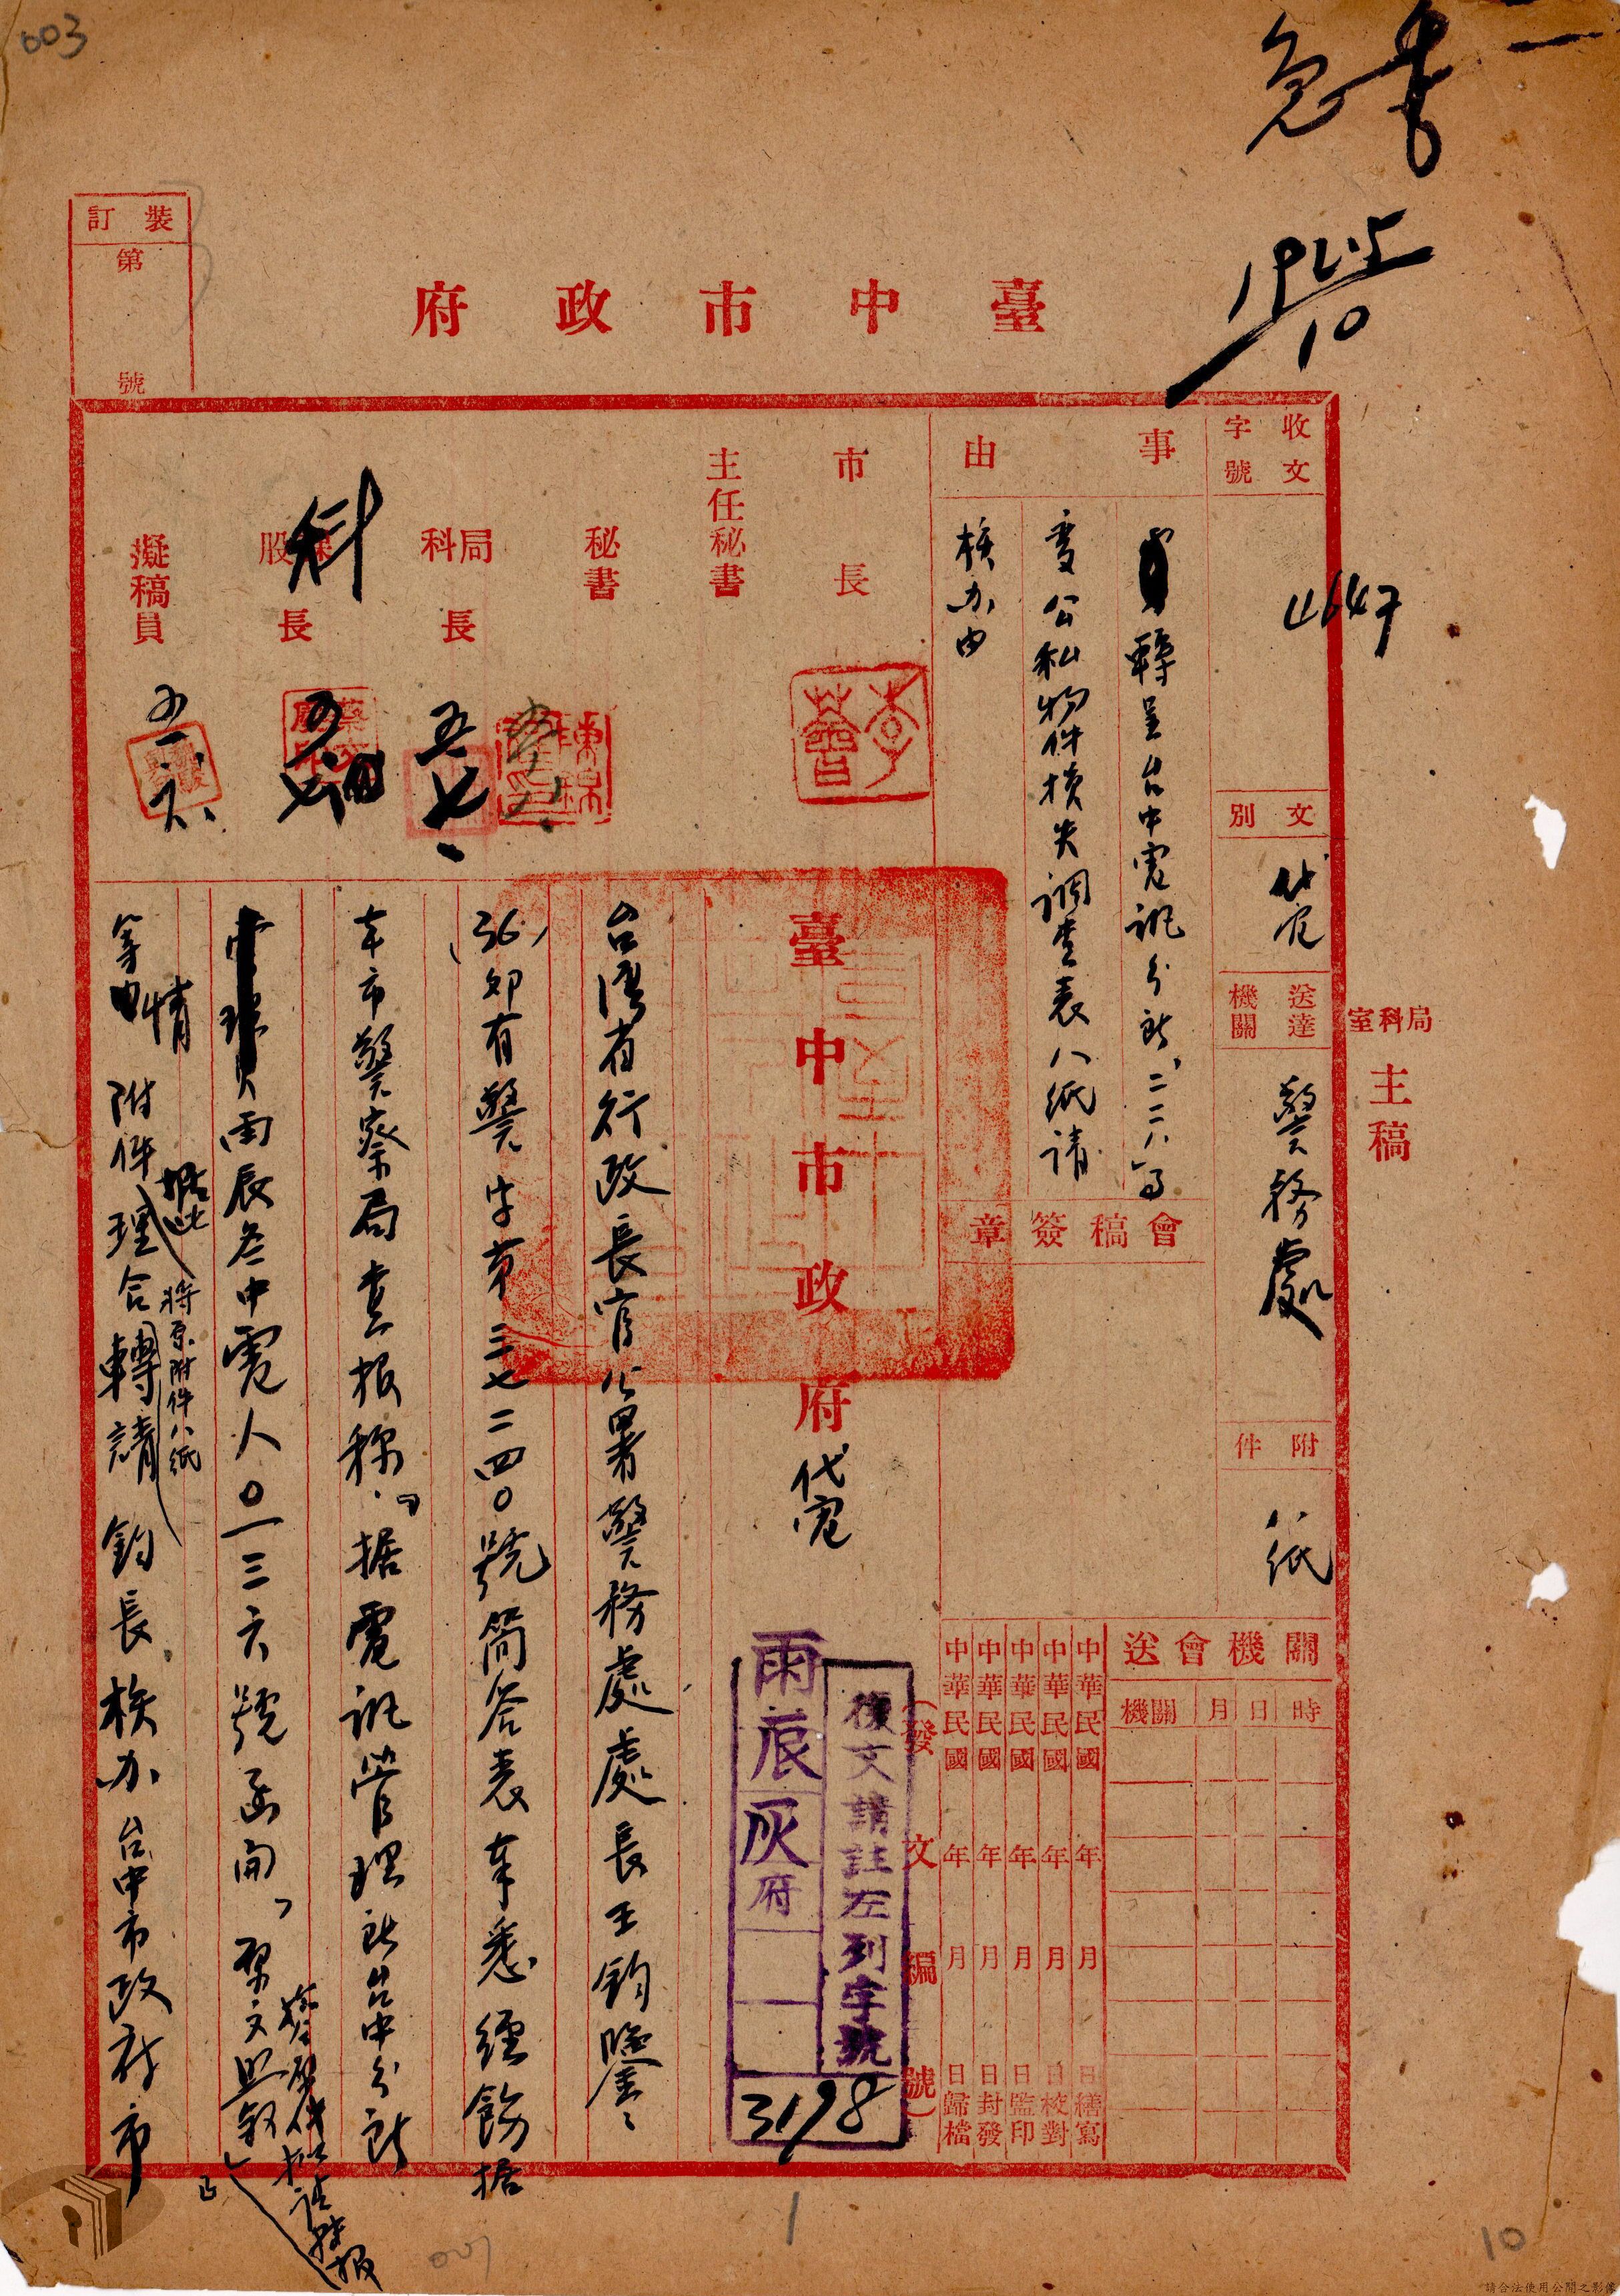 003
急
10
裝訂
第
號
臺中市政府
收文
字號
4647
文別
代电
送達
機關
警務處
附件
八紙
局科室
主稿
事由
轉呈台中電訊分所、二二八事
變公私物件損失調查表八紙請
核办由
市長
主任秘書
秘書
局科長
股長
科
擬稿員
五七
會稿簽章
關機會送
時日月關機
中華民國年月日繕寫
中華民國年月日校對
中華民國年月日監印
中華民國年月日封發
中華民國年月日歸檔
(發文編號)
復文請註左列字號
丙辰灰府
3198
臺中市政府代電
台灣省行政長官公署警務處處長王鈞鑒、
(36)卯有警字第三七二四〇號简答表奉悉經飭据
本市警察局查报称、「据電訊管理所台中分所
丙辰叁中電人〇一三六號函開、
等情附件据此
將原附件八紙
理合轉請鈞長核办台中市政府市
1
10
請合法使用公開之影像